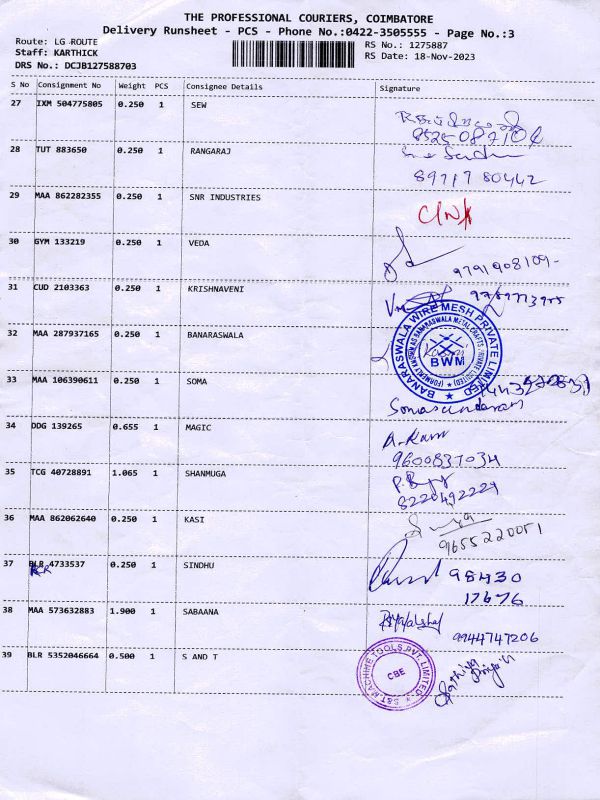 THE PROFESSIONAL COURIERS, COIMBATORE
Delivery Runsheet - PCS - Phone No.:0422-3505555 - Page No.:3
Route: LG ROUTE
Staff: KARTHICK
DRS No.: DCJB127588703
RS No.: 1275887
RS Date: 18-Nov-2023
S No Consignment No Weight PCS Consignee Details Signature
27 IXM 504775805 0.250 1 SEW
28 TUT 883650 0.250 1 RANGARAJ
89717 80442
29 MAA 862282355 0.250 1 SNR INDUSTRIES
30 GYM 133219 0.250 1 VEDA
9791908109-
31 CUD 2103363 0.250 1 KRISHNAVENI
32 MAA 287937165 0.250 1 BANARASWALA
BANARASWALA WIRE MESH PRIVATE LIMITED
BWM
33 MAA 106390611 0.250 1 SOMA
Somasundaram
34 DDG 139265 0.655 1 MAGIC
A. Ram
9600837034
35 TCG 40728891 1.065 1 SHANMUGA
8220492229
36 MAA 862062640 0.250 1 KASI
Surya
9655220051
37 BLR 4733537 0.250 1 SINDHU
98430
17676
38 MAA 573632883 1.900 1 SABAANA
9944747206
39 BLR 5352046664 0.500 1 S AND T
S&T MACHINE TOOLS PVT. LIMITED
CBE
Sathiya
Priya